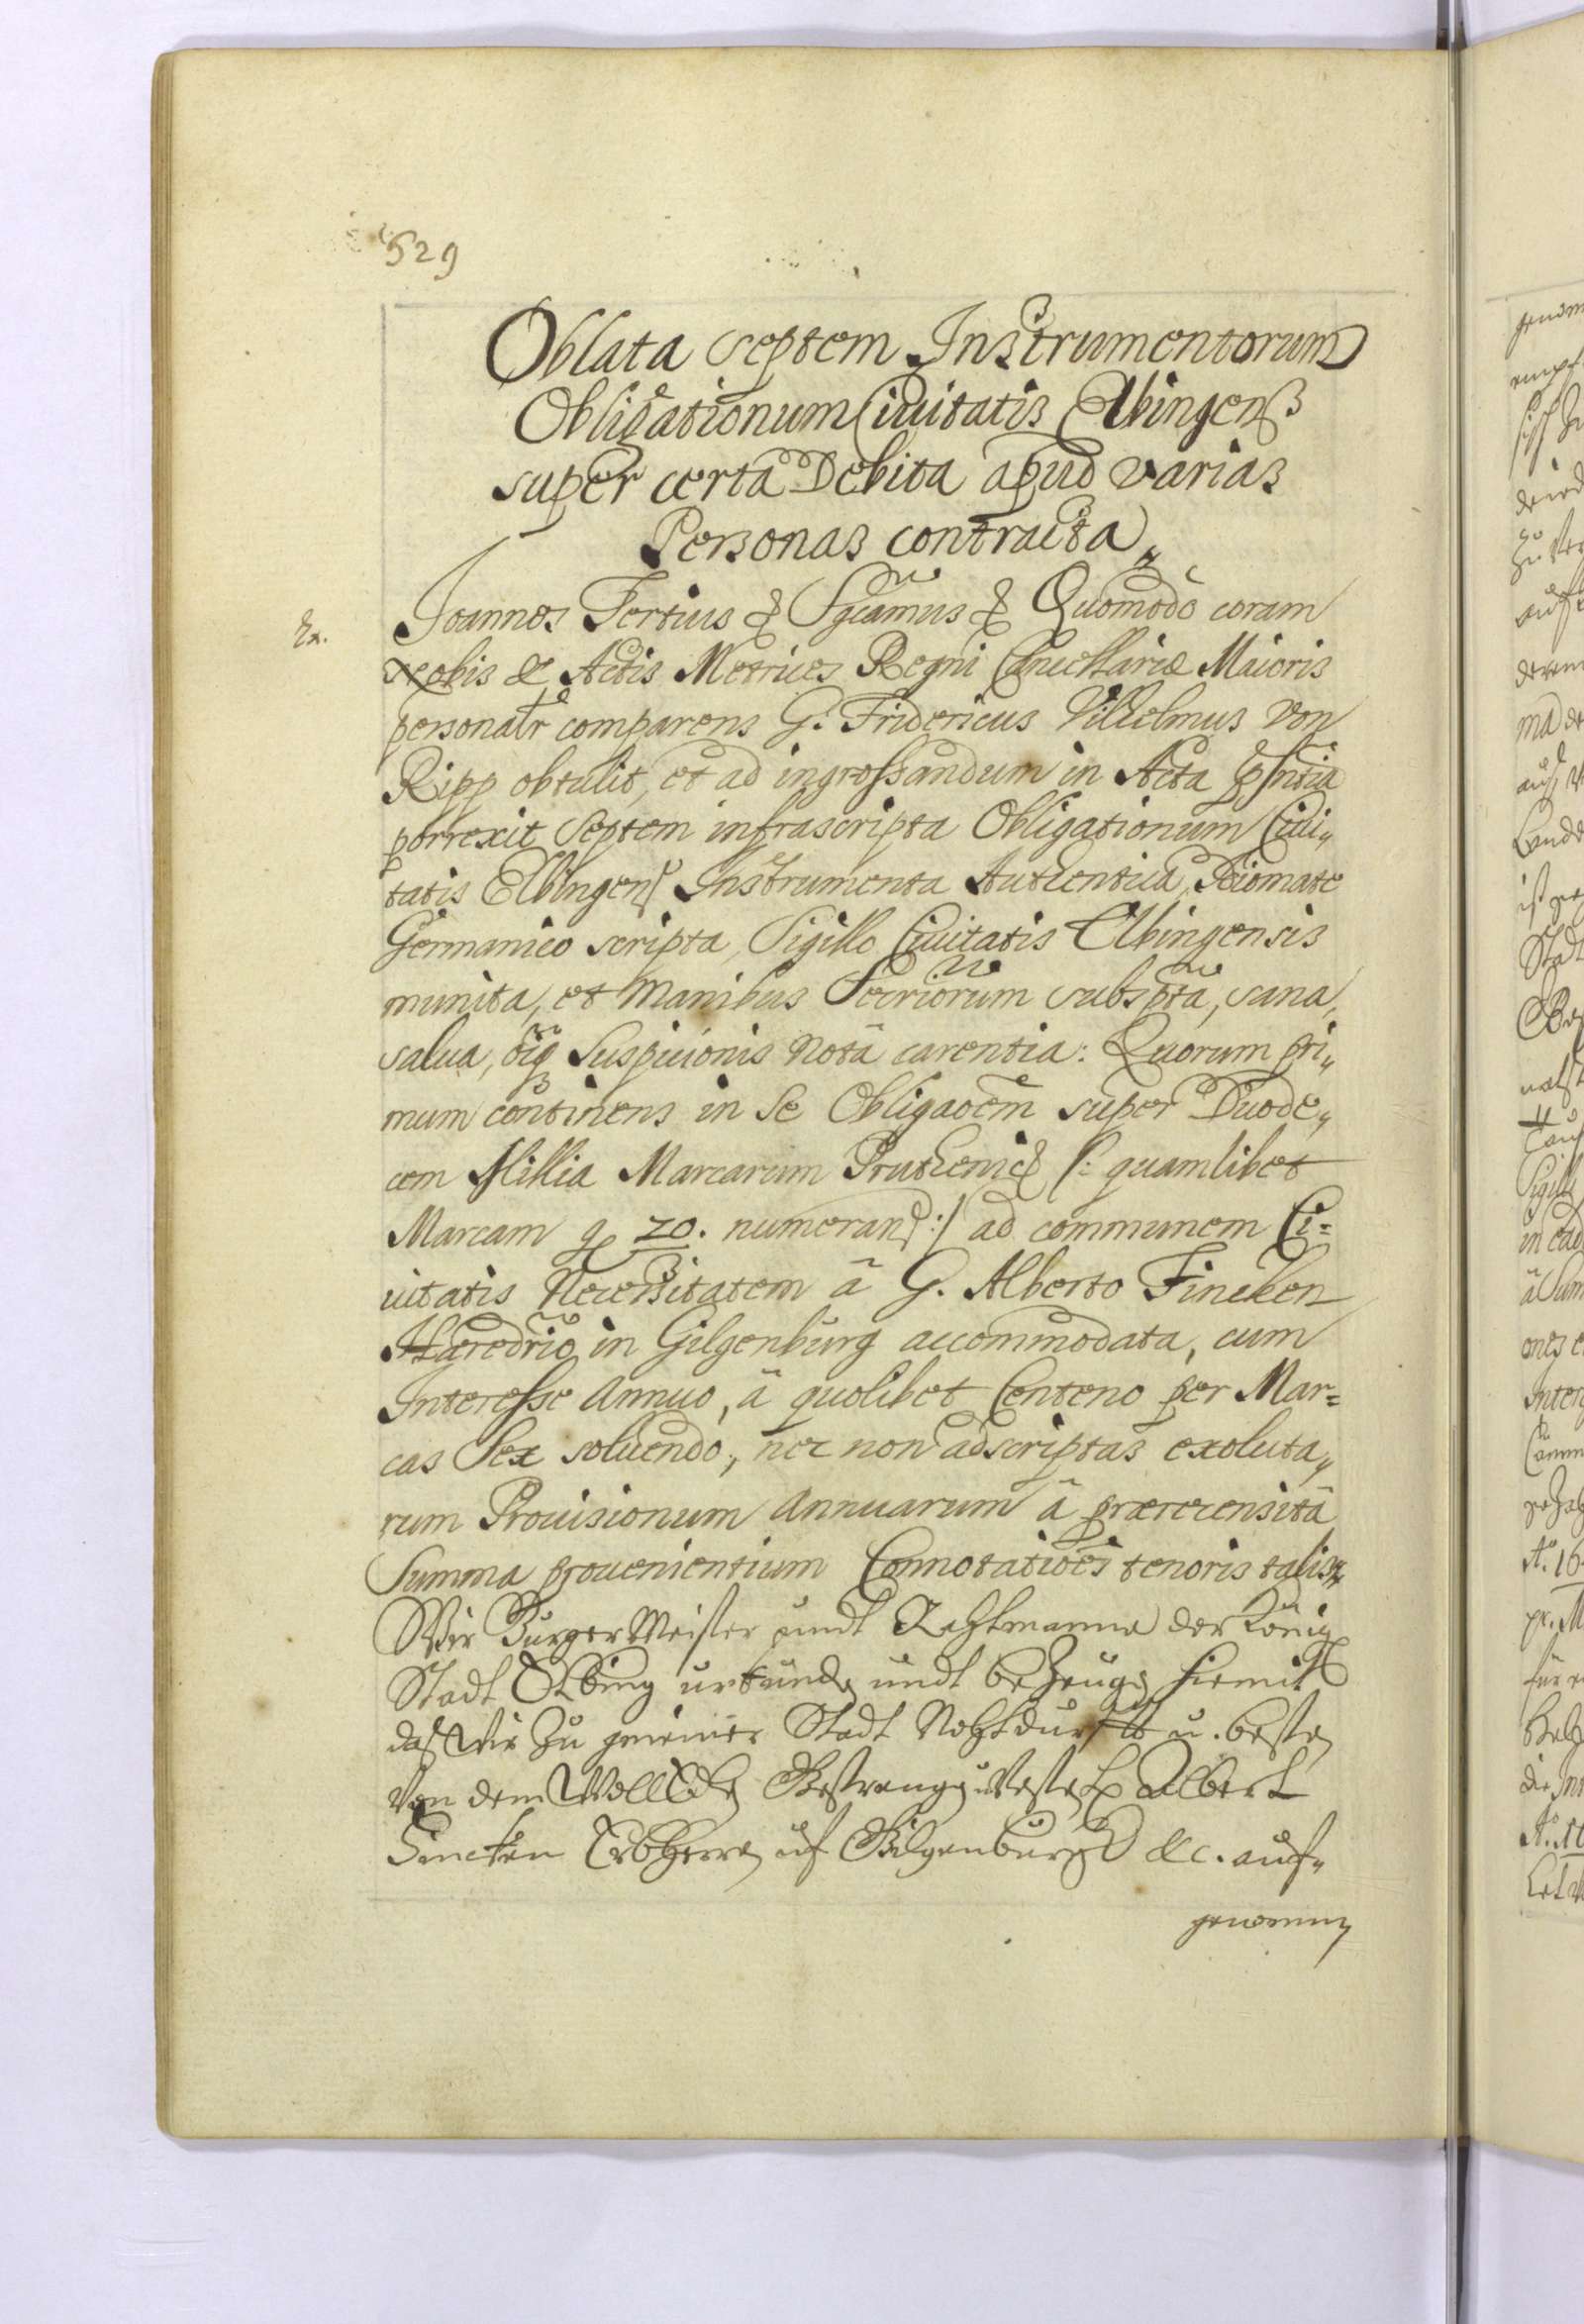 529
Oblata Septem Instrumentorum
Obligationum Ciuitatis Elbingens
super certa Debita apud varias
Personas contracta
Ex.
Joannes Tertius & Sgcamus & Quomodo coram
nobis & Actis Metrices Regni Cancellariæ Maioris
personalr comparens G: Fridericus Vilhelmus von
Ripp obtulit, et ad ingrossandum in Acta pñtia
porrexit Septem infrascripta Obligationum Ciui„
tatis Elbingens Instrumenta Authentica, Idiomate
Germanico scripta, Sigillo Ciuitatis Elbingensis
munita, et Manibus Secriorum subsρta, sana,
salua, oiq Suspicionis Notâ carentia: Quorum pri„
mum continens in Se Obligaoem super Duode„
cem Millia Marcarum Pruthenic /: quamlibet
Marcam p 20. numerand :/ ad communem Ci=
uitatis Necessitatem â G. Alberto Fincken
Hæredrio in Gilgenburg accommodata, cum
Interesse Annuo, â quolibet Centeno per Mar=
cas Sex soluendo, nec non adscriptas exoluta„
rum Prouisionum Annuarum â præcensitâ
Summa prouenientium Connotatioes tenoris talis
Wir BurgerMeister undt Rahtmanne der König
Stadt Elbing urkunden undt bezeugen hiemit
daß Wir zu gemeiner Stadt Nohtdurfft u. besten
Von dem WollEdlen Gestrengen Vesten H Albert
Fincken Erbherrn uf Gilgenburg &c. auf„
genommen